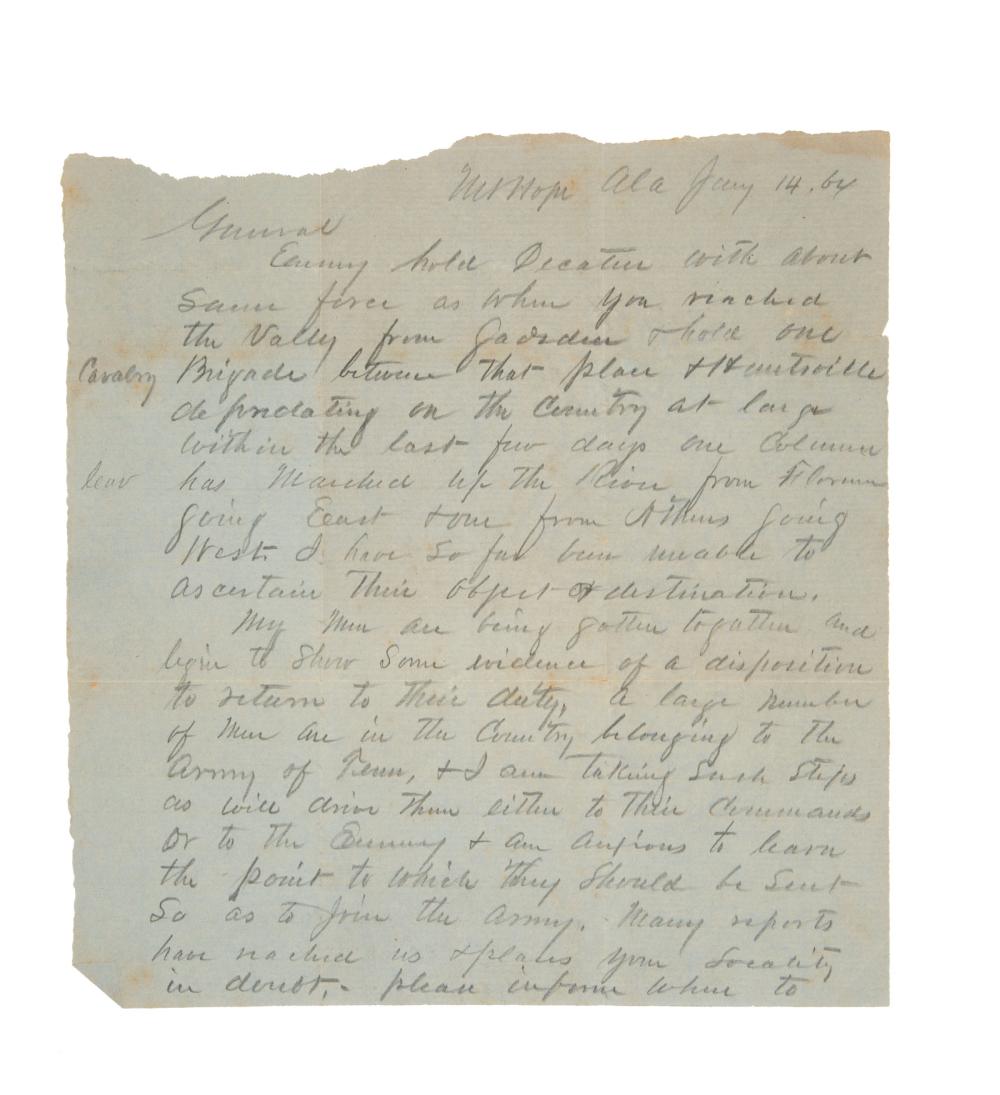 Mt Hope Ala Jany 14. 64
General
Enemy hold Decatur with about
same force as when you reached
the Valley from Gadsden & hold one
Cavalry Brigade between that place & Huntsville
depredating on the Country at large
within the last few days one Column
has Marched up the River from Florence
going East & one from Athens going
West I have so far been unable to
ascertain their object & destination.
My Men are being gotten togather and
begin to show some evidence of a disposition
to return to their duty, a large number
of Men are in the Country belonging to the
Army of Tenn, & I am taking such steps
as will drive them either to their Commands
or to the Enemy & am anxious to learn
the point to which they should be sent
so as to join the army. Many reports
have reached us & places your Locality
in doubt,- please inform where to